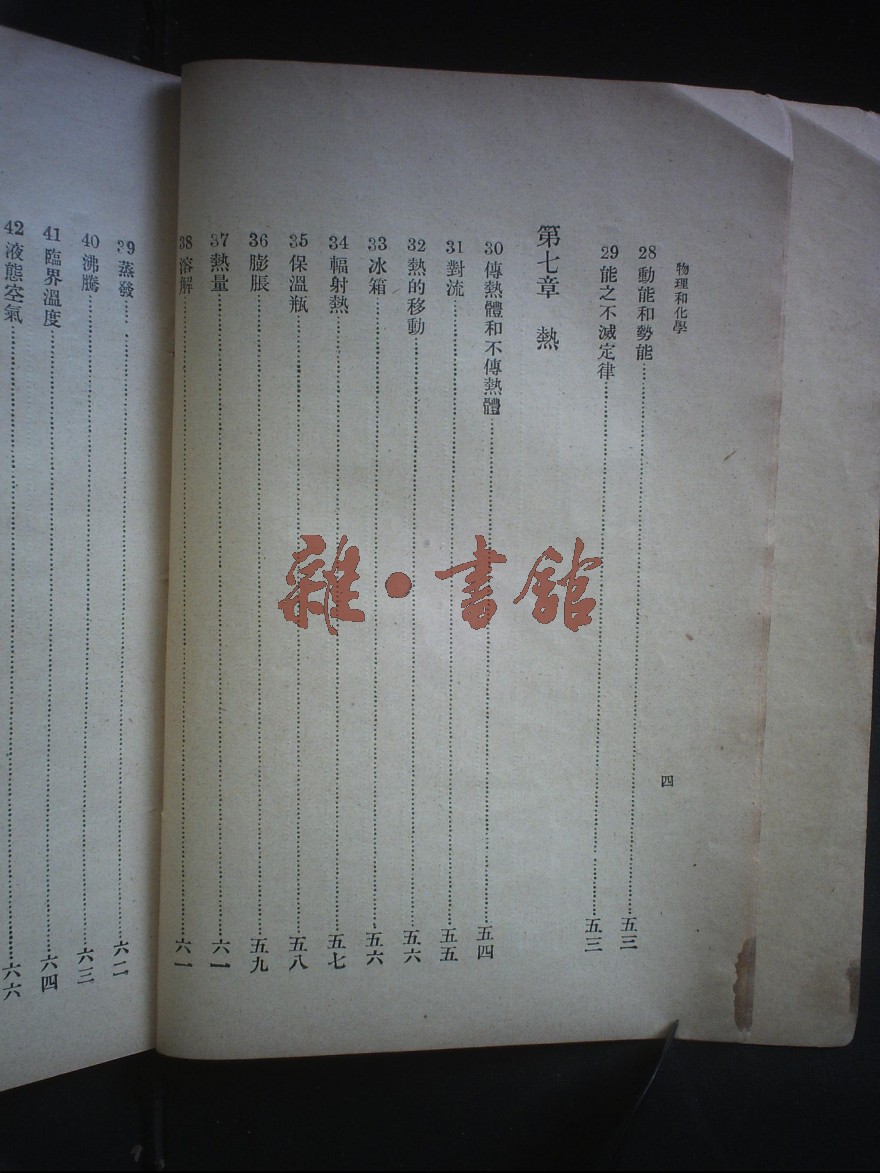 物理和化學
四
28 動能和勢能 五三
29 能之不滅定律 五三
第七章 熱
30 傳熱體和不傳熱體 五四
31 對流 五五
32 熱的移動 五六
33 冰箱 五六
34 輻射熱 五七
35 保溫瓶 五八
36 膨脹 五九
37 熱量 六一
38 溶解 六一
39 蒸發 六二
40 沸騰 六三
41 臨界溫度 六四
42 液態空氣 六六
雜·書館